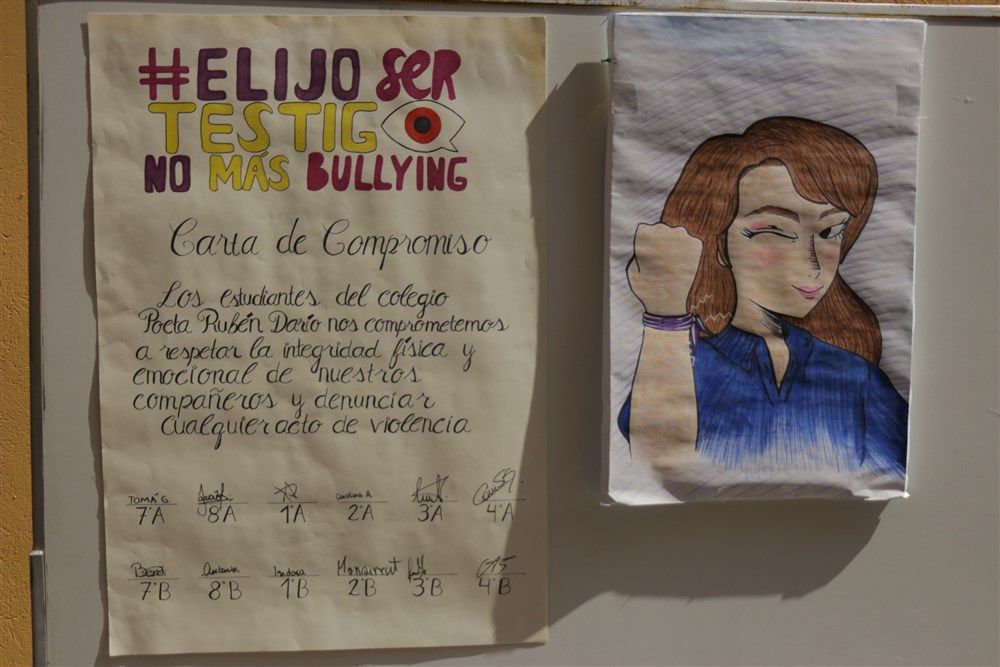 #ELIJO SER
TESTIGO
NO MÁS BULLYING
Carta de Compromiso
Los estudiantes del colegio
Poeta Rubén Darío nos comprometemos
a respetar la integridad física y
emocional de nuestros
compañeros y denunciar
cualquier acto de violencia
TOMÁ G.
7°A 8°A 1°A 2°A 3°A 4°A
Antonia Monserrat
7°B 8°B 1°B 2°B 3°B 4°B